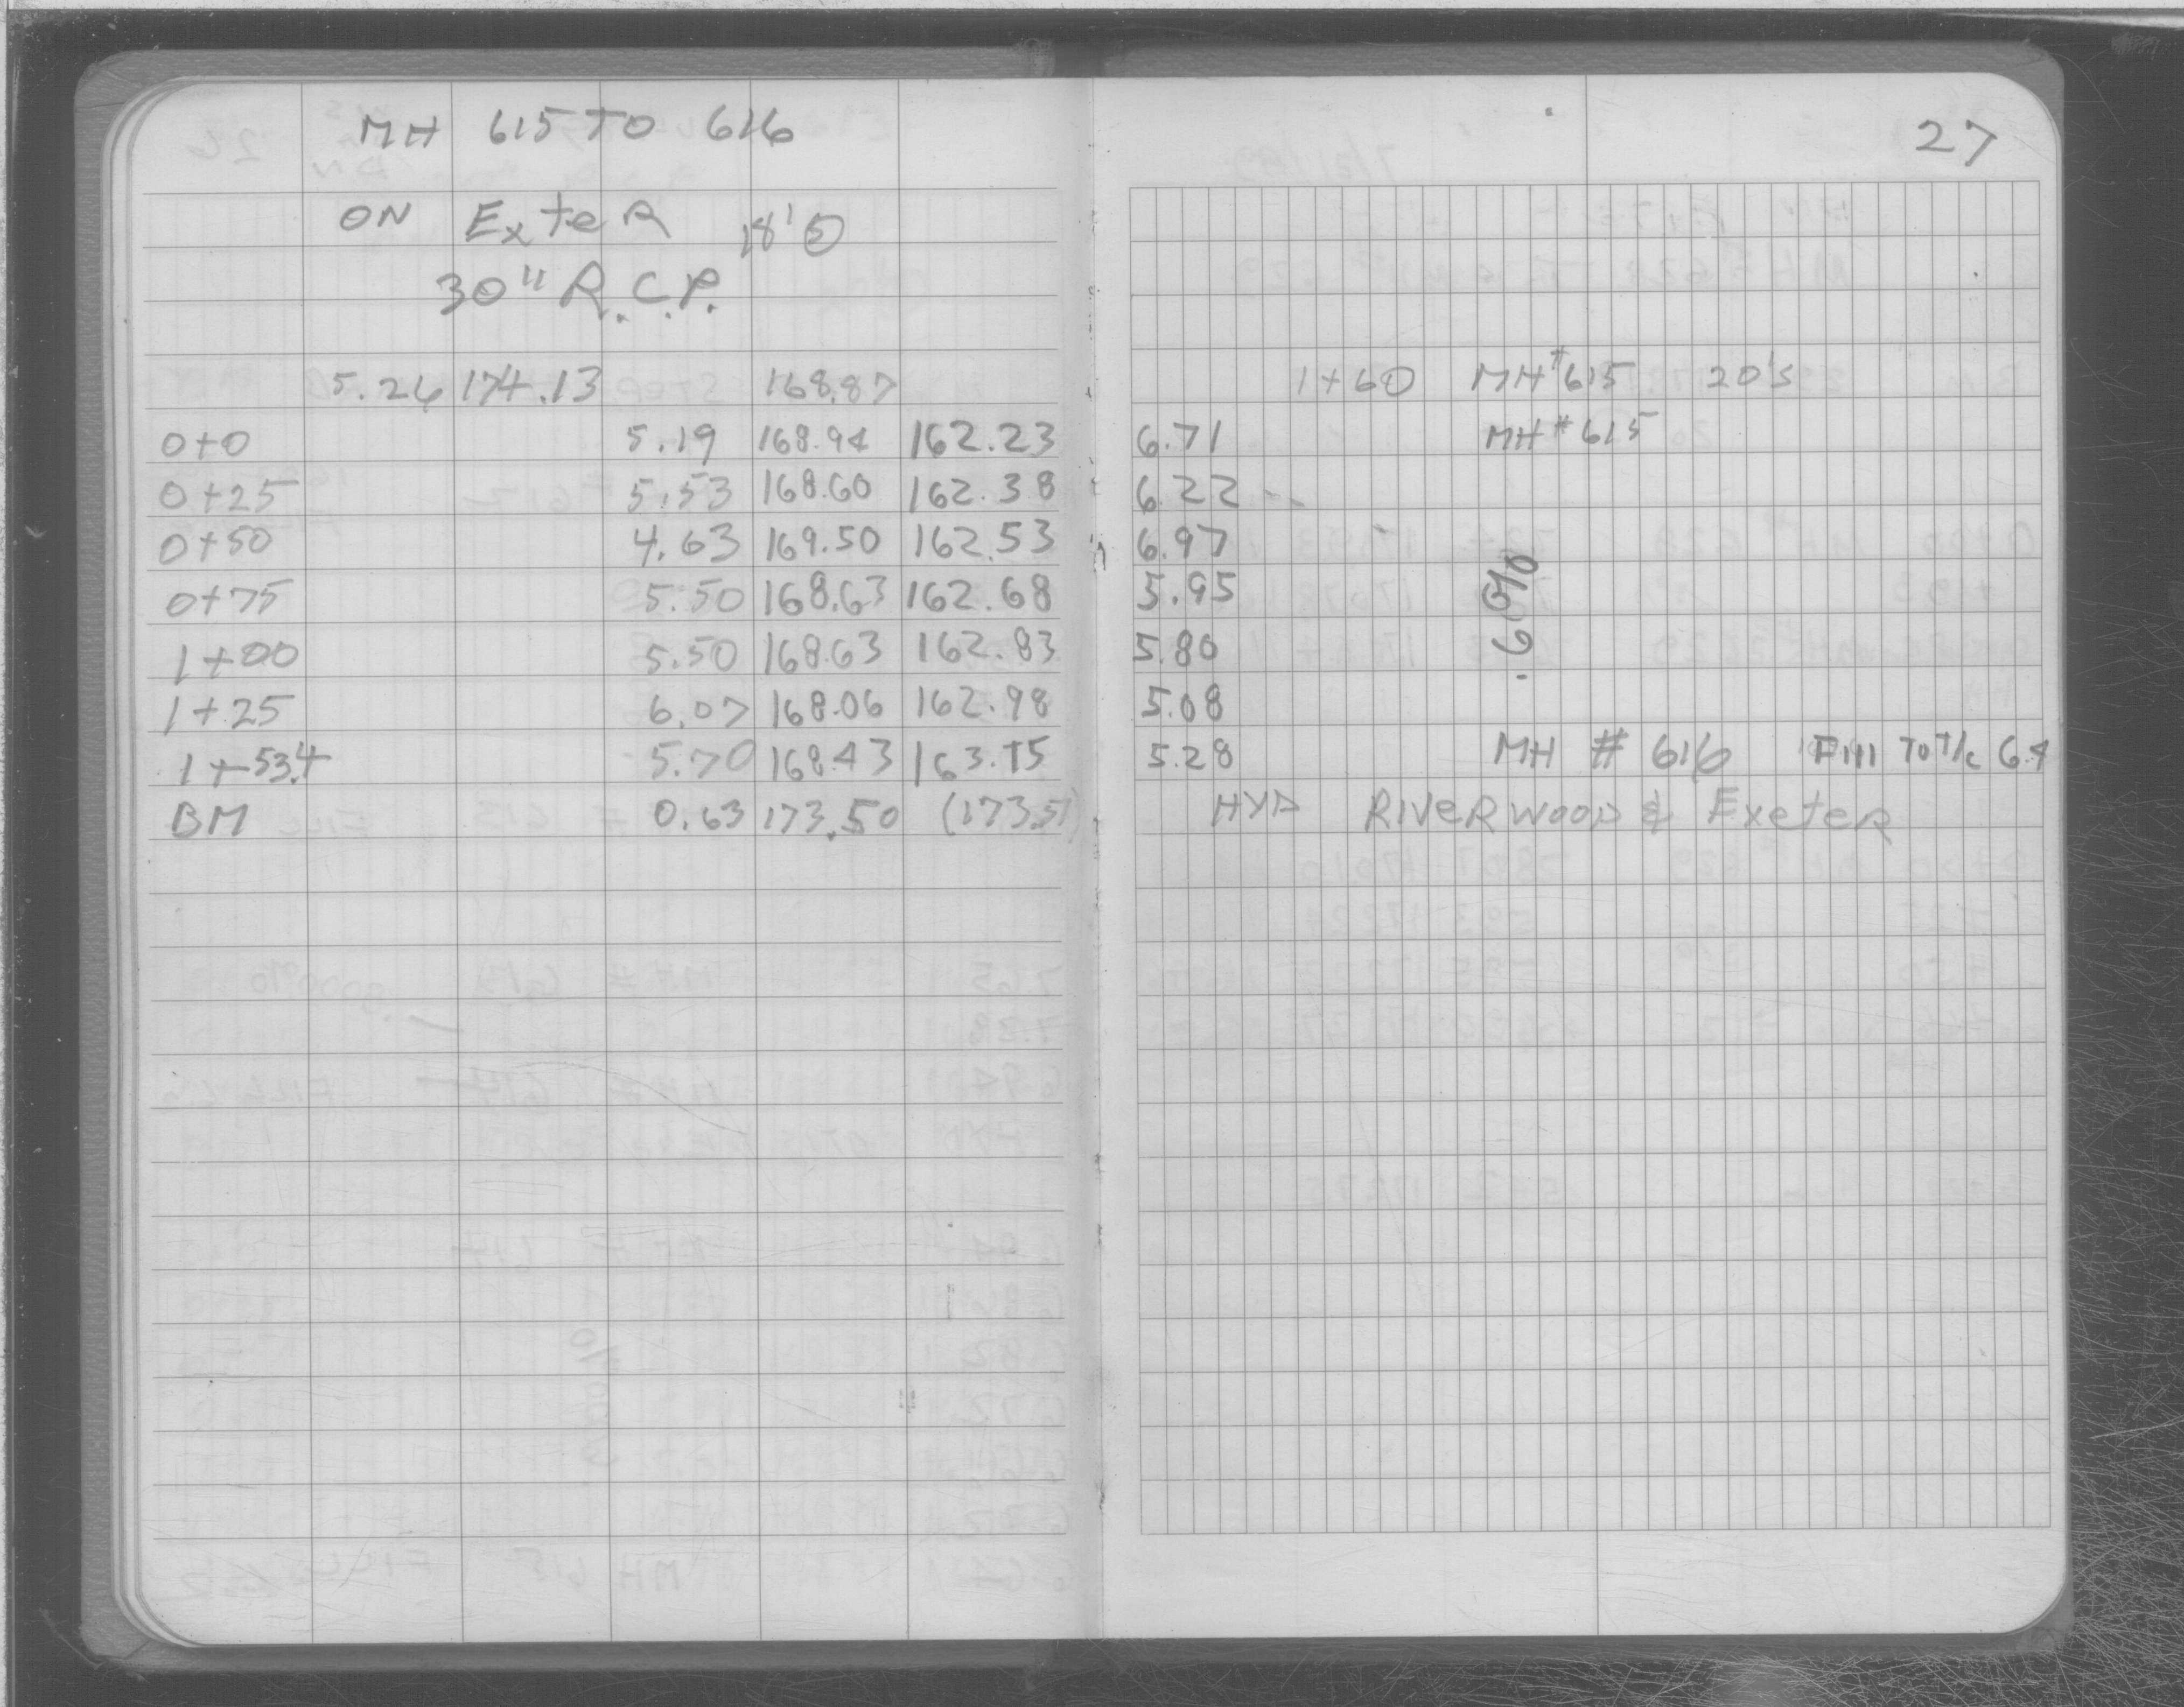 MH 615 TO 616
27
ON ExteR 18'
30" R.C.P.
5.26 174.13 168.87 1+60 MH# 615 20's
0+0 5.19 168.94 162.23 6.71 MH# 615
0+25 5.53 168.60 162.38 6.22
0+50 4.63 169.50 162.53 6.97
0+75 5.50 168.63 162.68 5.95
1+00 5.50 168.63 162.83 5.80 .60%
1+25 6.07 168.06 162.98 5.08
1+53.4 5.70 168.43 163.15 5.28 MH # 616 Fill To T/c 6.4
BM 0.63 173.50 (173.51) HYD RIVERWOOD & ExeteR